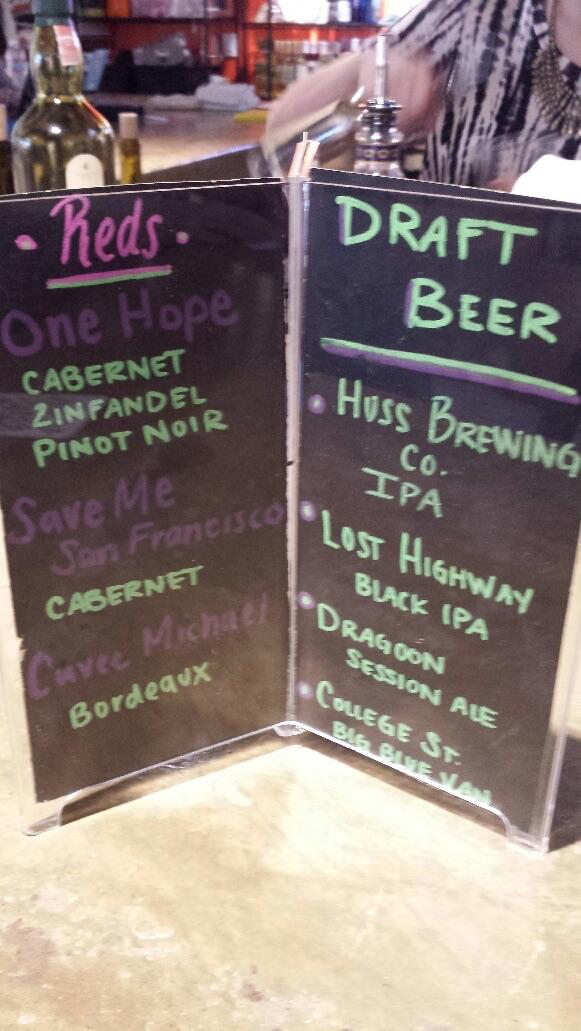 Reds
One Hope
CABERNET
ZINFANDEL
PINOT NOIR
Save Me
San Francisco
CABERNET
Cuvee Michael
Bordeaux
DRAFT
BEER
HUSS BREWING
CO.
IPA
LOST HIGHWAY
BLACK IPA
DRAGOON
SESSION ALE
COLLEGE ST.
BIG BLUE VAN